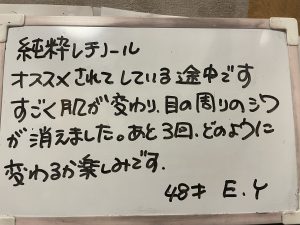 純粋レチノール
オススメされてしている途中です
すごく肌が変わり、目の周りのシワ
が消えました。あと3回、どのように
変わるか楽しみです.
48才 E.Y